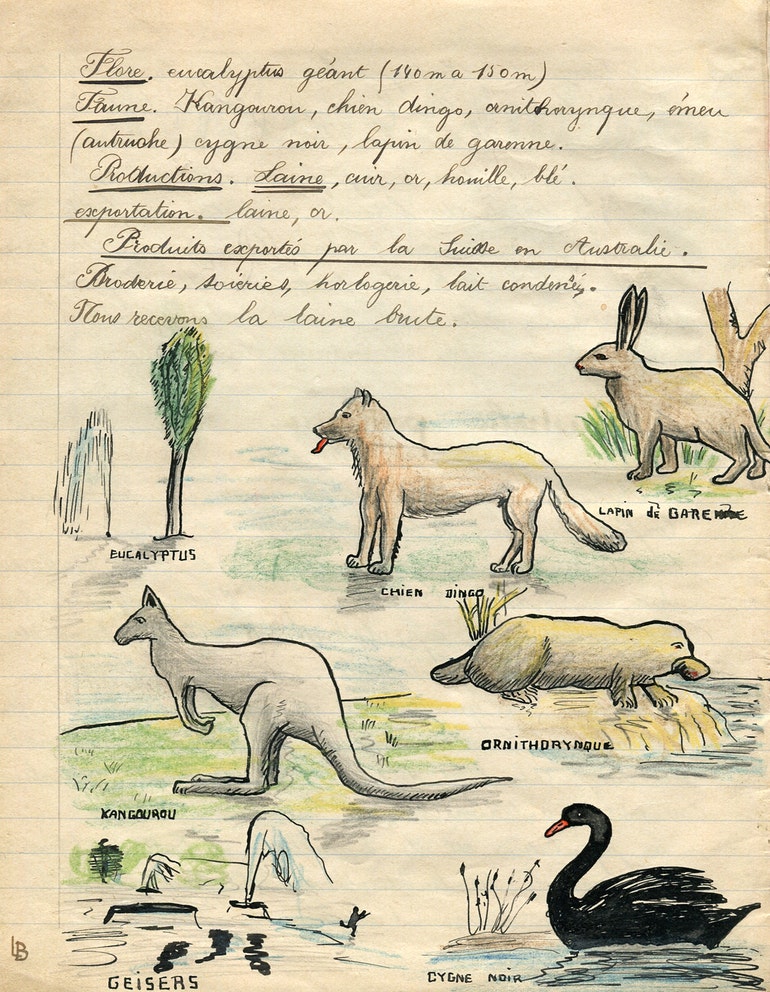 Flore. eucalyptus géant (140m a 150m)
Faune. Kangourou, chien dingo, ornithorynque, émeu
(autruche) cygne noir, lapin de garenne.
Productions. Laine, cuir, or, houille, blé.
exportation. laine, or.
Produits exportés par la Suisse en Australie.
Broderie, soieries, horlogerie, lait condensé,.
Nous recevons la laine brute.
LAPIN de GARENNE
EUCALYPTUS
CHIEN DINGO
ORNITHORYNQUE
KANGOUROU
GEISERS
CYGNE NOIR
LB